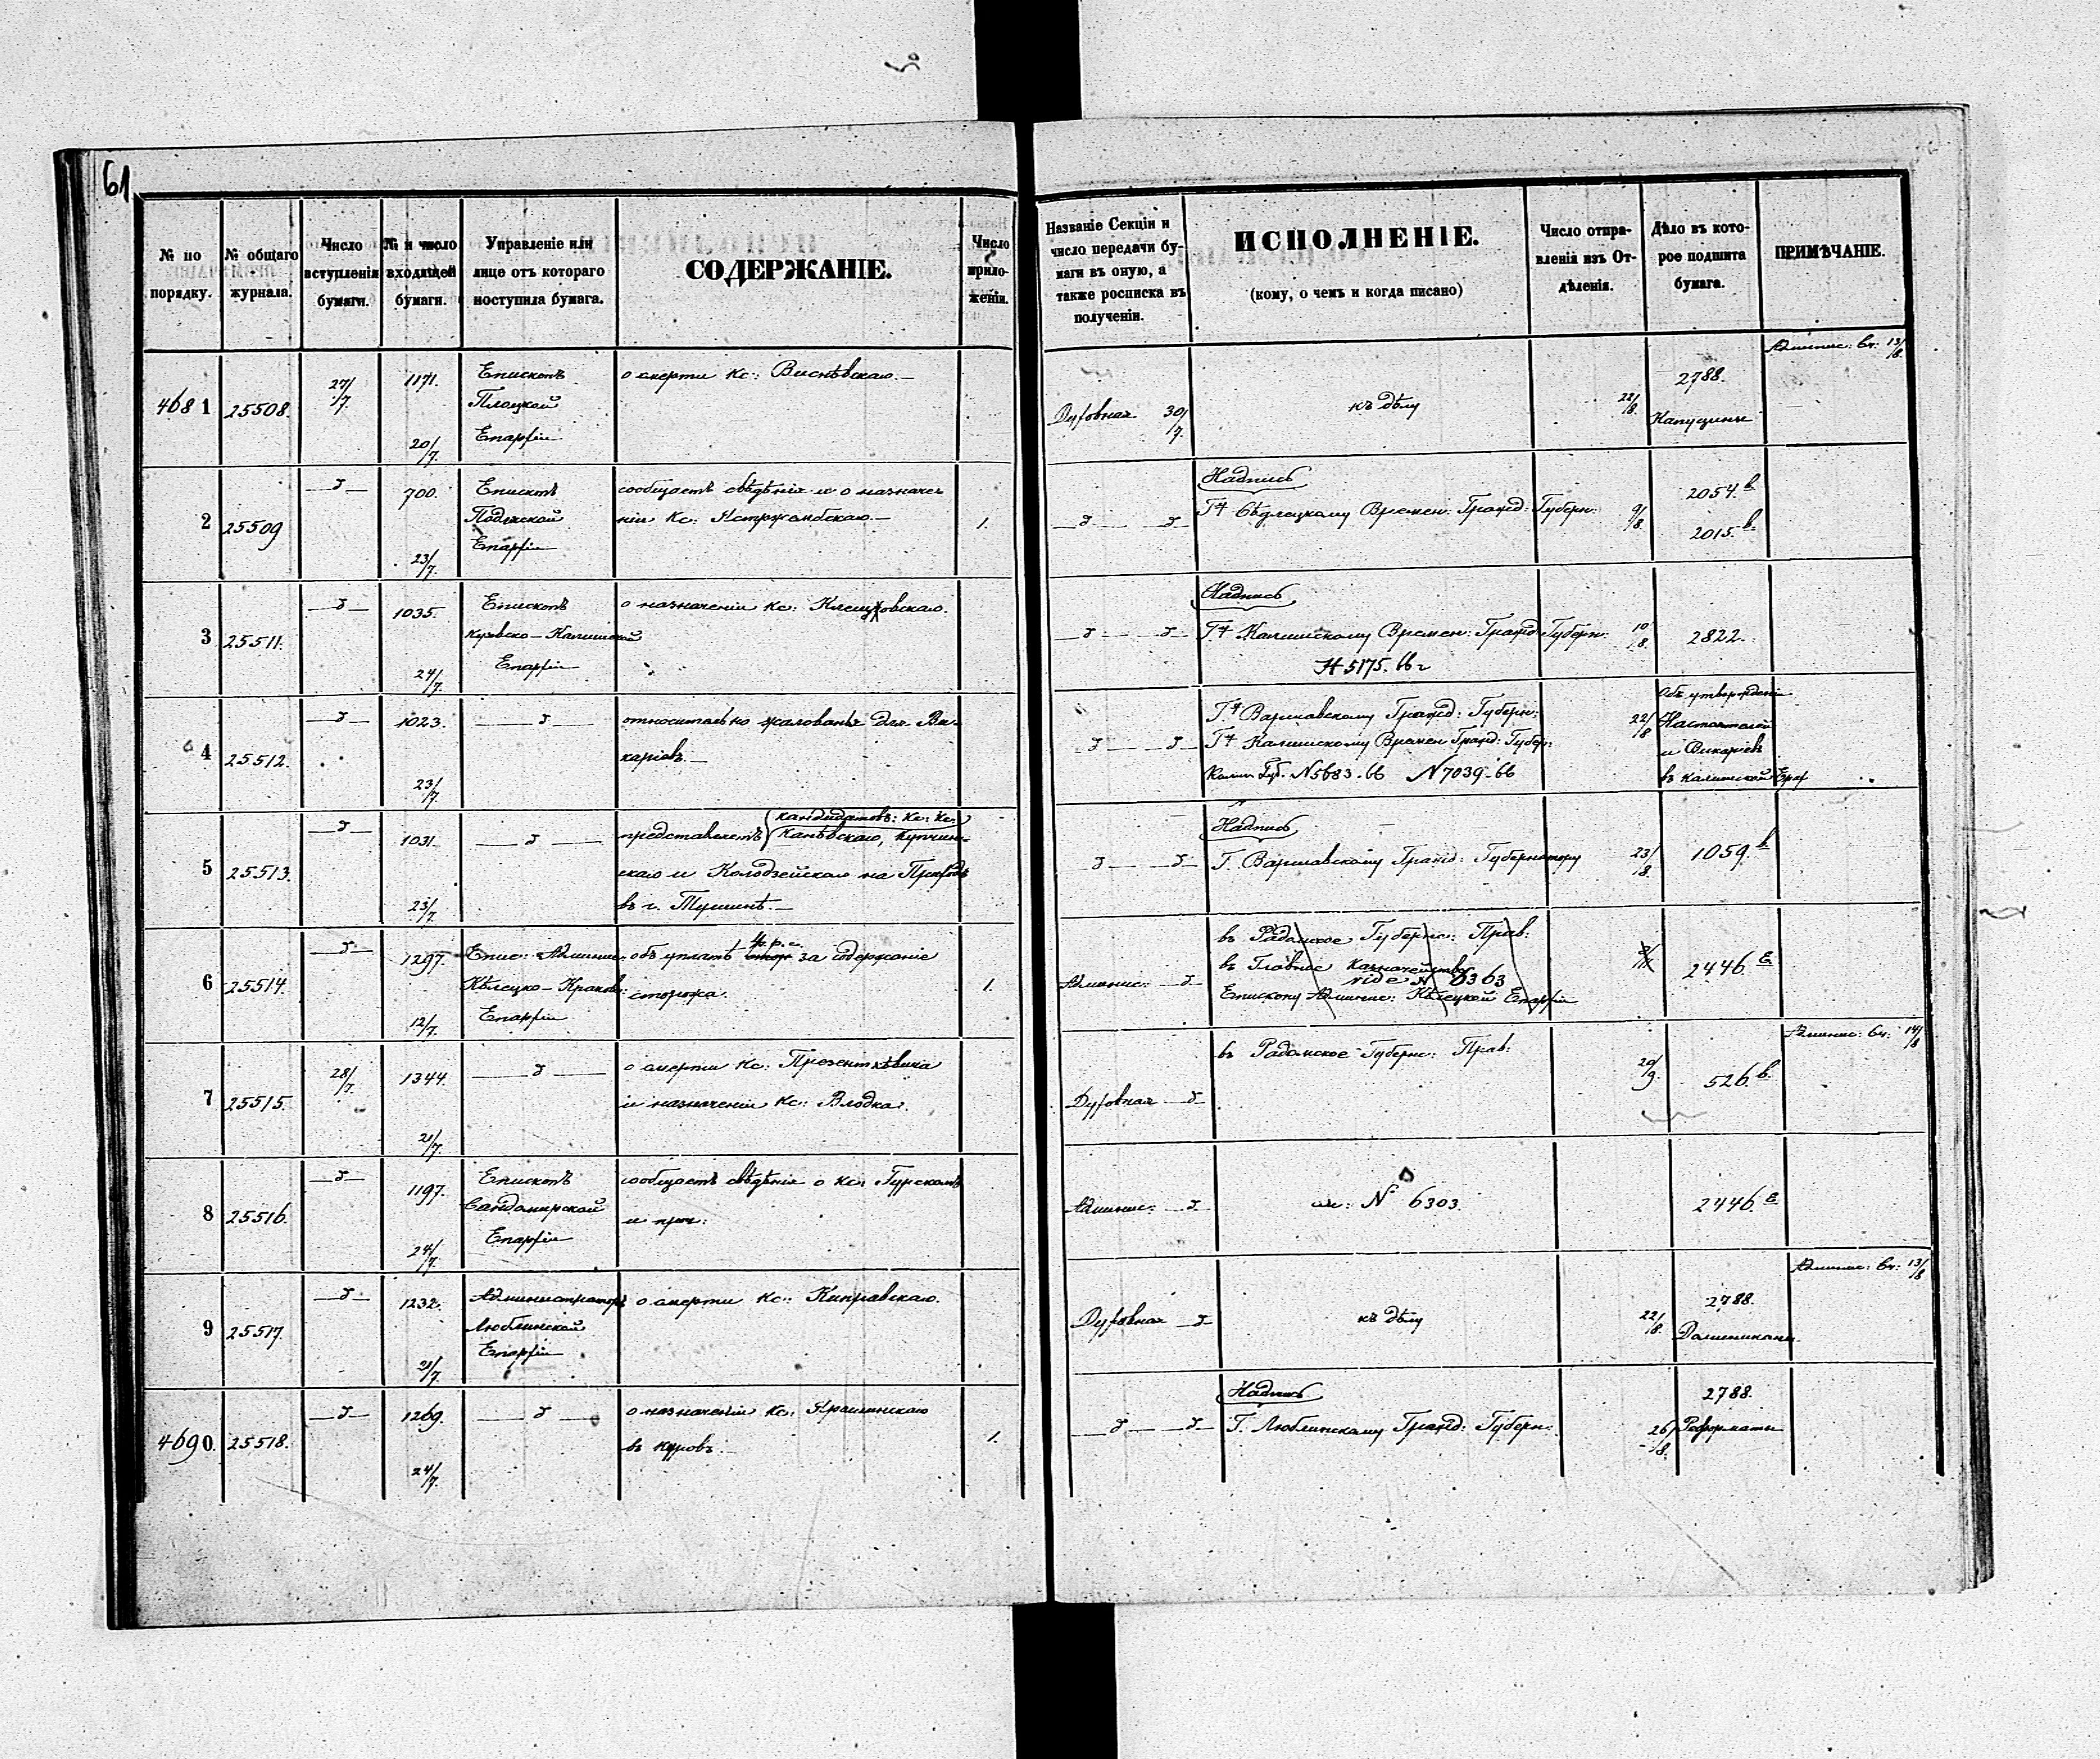 61
№ по порядку.
№ общаго журнала.
Число вступленія бумаги.
№ и число входящей бумаги.
Управленіе или лице отъ котораго поступила бумага.
СОДЕРЖАНІЕ.
Число приложеній.
Названіе Секціи и число передачи бумаги въ оную, а также росписка въ полученіи.
ИСПОЛНЕНІЕ.
(кому, о чемъ и когда писано)
Число отправленія изъ Отдѣленія.
Дѣло въ которое подшита бумага.
ПРИМѢЧАНІЕ.
4681 25508. 27/7. 1171. 20/7.
Епископъ
Плоцкой
Епархіи
о смерти Кс: Виснѣвскаго.—
Духовная 30/7.
къ дѣлу
22/8.
2788.
Капуцины
Админис: Сч: 13/8.
2 25509 —д— 700. 23/7.
Епископъ
Подляской
Епархіи
сообщаетъ свѣдѣнія и о назначе
ніи Кс: Ястржембскаго.—
1.
—д— —д—
Надпись
Гну Сѣдлецкому Времен: Гражд: Губерн:
9/8.
2054.в
2015.в
3 25511. —д— 1035. 24/7.
Епископъ
Куявско-Калишской
Епархіи
о назначеніи Кс: 
—д— —д—
Надпись
Гну Калишскому Времен: Гражд: Губерн:
N 5175. 66 г
10/8.
2822.
4 25512. —д— 1023. 23/7.
—д—
относительно жалованья для Ви-
каріевъ.—
—д— —д—
Гну Варшавскому Гражд: Губерн:
Гну Калишскому Времен Гражд: Губер:
Калиш Губ. N 5683-66 N 7039-66
22/8
Объ утвержденіи
Настоятелей
и Викаріевъ
въ Калишской Епар
5 25513. —д— 1031. 23/7.
—д—
представляетъ кандидатовъ: Кс: Кс:
Канѣвскаго, Купчин-
скаго и Колодзейскаго на Приходъ
въ г. Тушинѣ.—
д— —д—
Надпись
Г. Варшавскому Гражд: Губернатору
23/8.
1059.в
6 25514. —д— 1297. 12/7.
Епис: Админис:
Кѣлецко-Краков:
Епархіи
объ уплатѣ р. с. за содержаніе
сторожа.
1.
Админис: —д—
въ Радомское Губернс: Прав:
въ Главное Казначейство
vide N 6363
Епископу Админис: Кѣлецкой Епархіи
2446.Е
7 25515. 28/7. 1344. 21/7.
—д—
о смерти Кс: Презенткѣвича
и назначеніи Кс: Влодка.
Духовная —д—
въ Радомское Губернс: Прав:
20/9.
526.в
Админис: Сч: 14/8
8 25516. —д— 1197. 24/7.
Епископъ
Сандомирской
Епархіи
сообщаетъ свѣдѣнія о Кс: Гурскомъ
и проч:
Админис: —д—
см: N 6303.
2446.Е
9 25517. —д— 1232. 21/7.
Администраторъ
Люблинской
Епархіи
о смерти Кс: Киправскаго.
Духовная —д—
къ дѣлу
22/8.
2788.
Доминиканы
Админис: Сч: 13/8
4690. 25518. —д— 1269. 24/7.
—д—
о назначеніи Кс: Крашинскаго
въ Куровъ.—
1.
—д— —д—
Надпись
Г. Люблинскому Гражд: Губерн:
26/8.
2788.
Реформаты